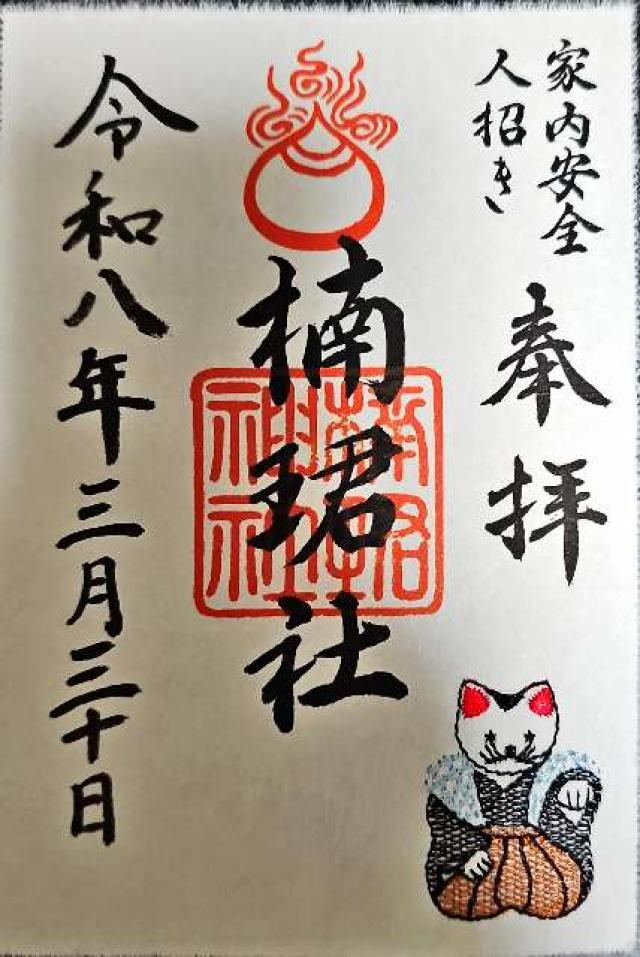 家内安全
人招き
奉拝
楠珺社
令和八年三月三十日